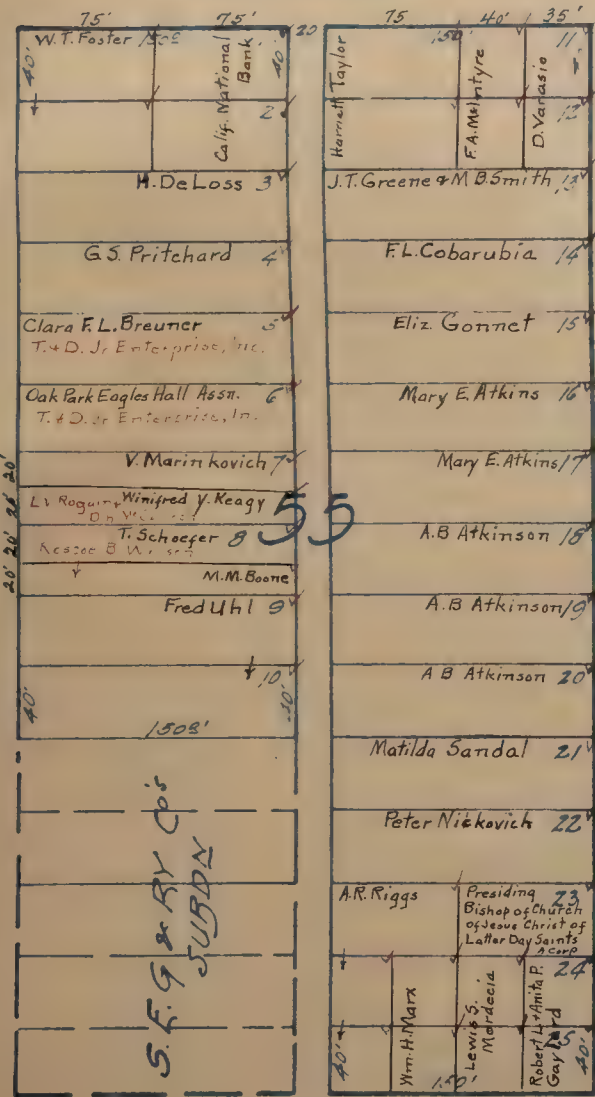 75' 75' 20
W.T. Foster 150.8 1
40' 40'
Calif. National
Bank
2
H. DeLoss 3
G.S. Pritchard 4
Clara F.L. Breuner 5
T. & D. Jr Enterprise, Inc.
Oak Park Eagles Hall Assn. 6
T. & D. Jr Enterprise, In.
V. Marinkovich 7
Winifred Y. Keagy
T. Schaefer 8
M.M. Boone
Fred Uhl 9
20' 20' 20' 20'
10
40' 40'
150.8'
S.E.G & RY Co's
SUBDN
55
75 40' 35'
150' 11
Harriett Taylor
F.A. McIntyre
D. Vanasio
12
J.T. Greene & M B. Smith 13
F.L. Cobarubia 14
Eliz. Gonnet 15
Mary E. Atkins 16
Mary E. Atkins 17
A.B Atkinson 18
A.B Atkinson 19
A B Atkinson 20
Matilda Sandal 21
Peter Nickovich 22
A.R. Riggs
Presiding 23
Bishop of Church
of Jesus Christ of
Latter Day Saints
A Corp
24
Wm. H. Marx
Lewis S.
Mordecia
Robert L. & Anita P.
Gaylord
25
40' 150' 40'